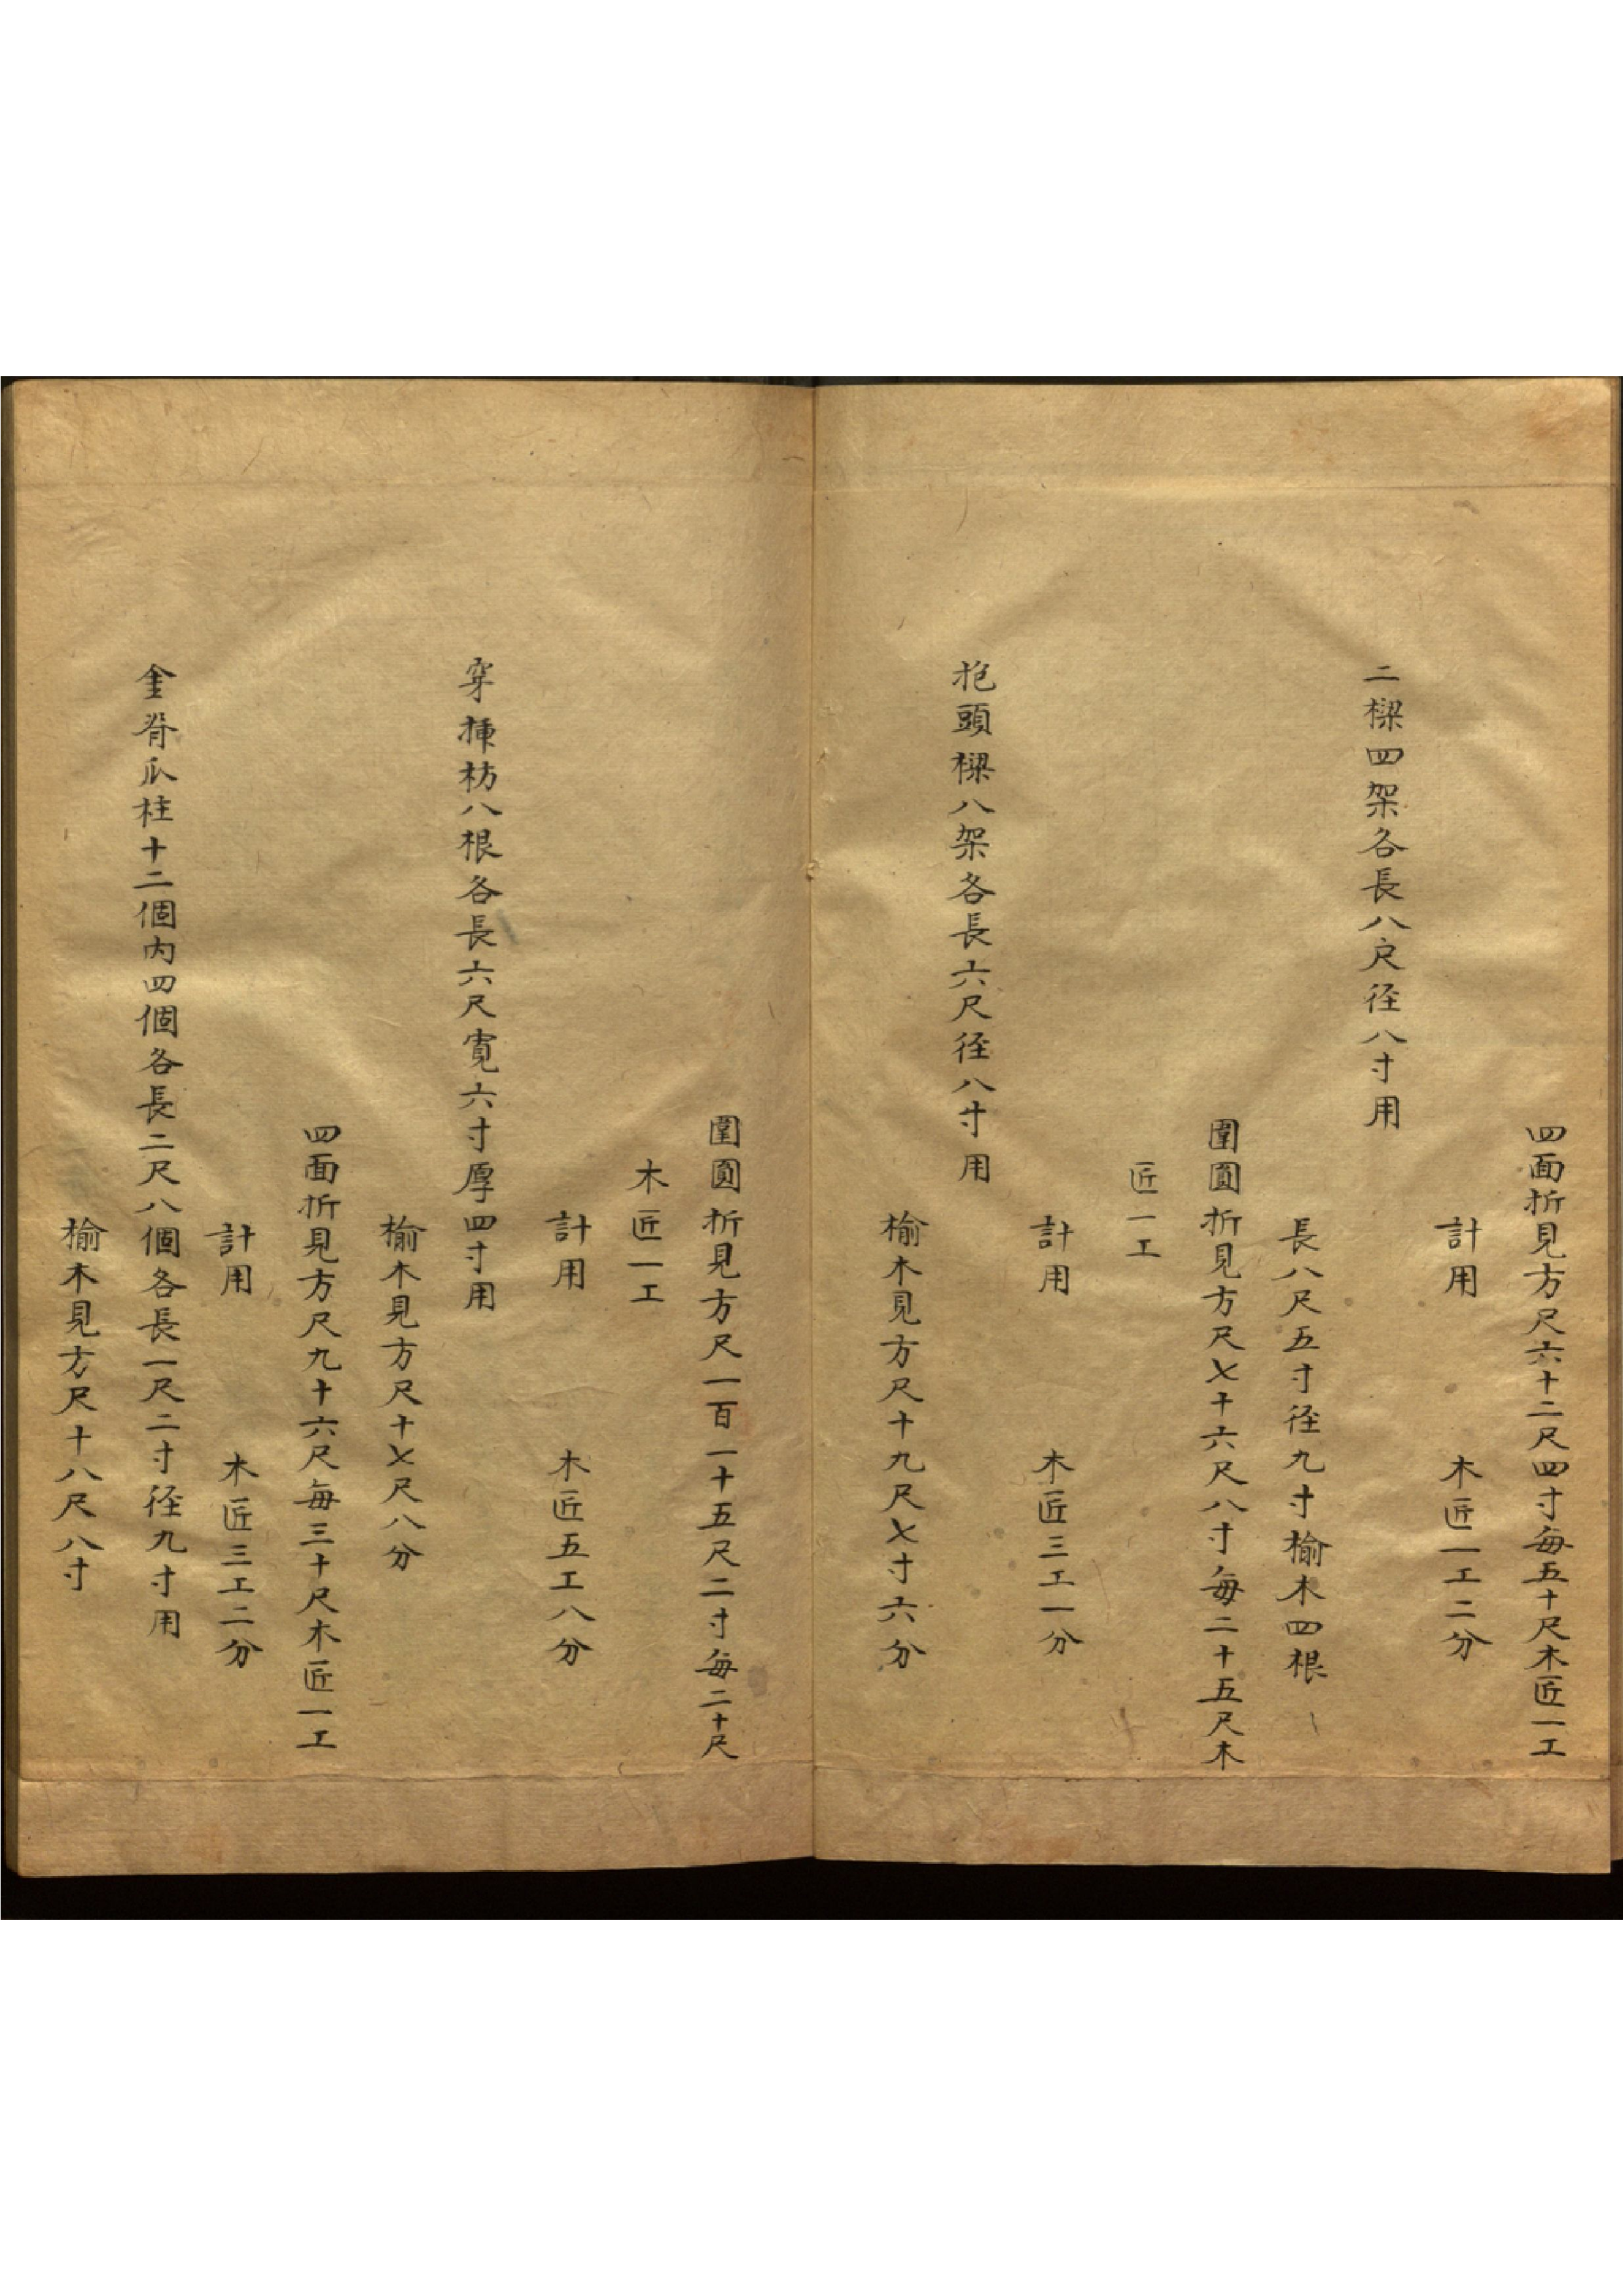 四面折見方尺六十二尺四寸每五十尺木匠一工
計用　木匠一工二分
二樑四架各長八尺徑八寸用
長八尺五寸徑九寸榆木四根
圍圓折見方尺七十六尺八寸每二十五尺木
匠一工
計用　木匠三工一分
抱頭樑八架各長六尺徑八寸用
榆木見方尺十九尺七寸六分
圍圓折見方尺一百一十五尺二寸每二十尺
木匠一工
計用　木匠五工八分
穿揷枋八根各長六尺寬六寸厚四寸用
榆木見方尺十七尺八分
四面折見方尺九十六尺每三十尺木匠一工
計用　木匠三工二分
金脊瓜柱十二個內四個各長二尺八個各長一尺二寸徑九寸用
榆木見方尺十八尺八寸